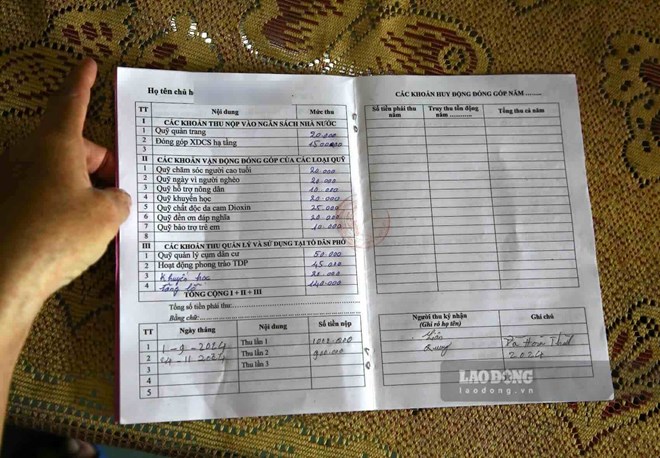 Họ tên chủ h
TT Nội dung Mức thu
I CÁC KHOẢN THU NỘP VÀO NGÂN SÁCH NHÀ NƯỚC
1 Quỹ quân trang 20.000
2 Đóng góp XDCS hạ tầng 1500000
3
II CÁC KHOẢN VẬN ĐỘNG ĐÓNG GÓP CỦA CÁC LOẠI QUỸ
1 Quỹ chăm sóc người cao tuổi 20.000
2 Quỹ ngày vì người nghèo 20.000
3 Quỹ hỗ trợ nông dân 10.000
4 Quỹ khuyến học 20.000
5 Quỹ chất độc da cam Dioxin 25.000
6 Quỹ đền ơn đáp nghĩa 20.000
7 Quỹ bảo trợ trẻ em 10.000
8
III CÁC KHOẢN THU QUẢN LÝ VÀ SỬ DỤNG TẠI TỔ DÂN PHỐ
1 Quỹ quản lý cụm dân cư 50.000
2 Hoạt động phong trào TDP 45.000
3 Khuyến học 20.000
4 140.000
TỔNG CỘNG I + II + III
Tổng số tiền phải thu:
Bằng chữ:
TT Ngày tháng Nội dung Số tiền nộp
1 1-9-2024 Thu lần 1
2 24 11 2024 Thu lần 2 900.000
3 Thu lần 3
4
5
CÁC KHOẢN HUY ĐỘNG ĐÓNG GÓP NĂM ........
Số tiền phải thu năm Truy thu tồn đọng năm ............ Tổng thu cả năm
Người thu ký nhận (Ghi rõ họ tên) Ghi chú
2024
LAO ĐỘNG
laodong.vn